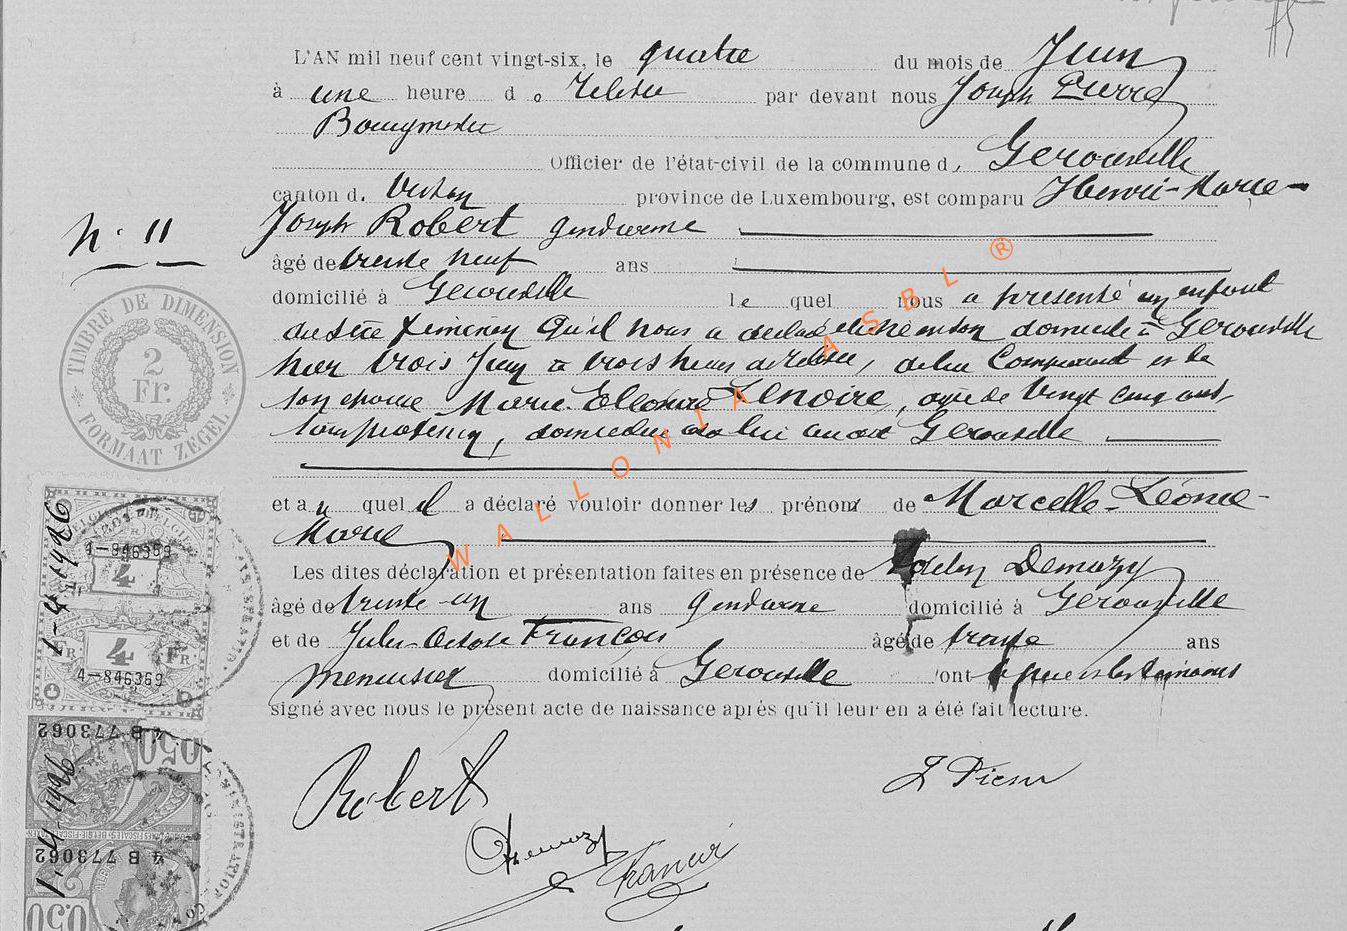 L'AN mil neuf cent vingt-six, le quatre du mois de Juin
à une heure d. relevée par devant nous Joseph Pierre
Officier de l'état-civil de la commune d, Gerouville
canton d. Virton province de Luxembourg, est comparu Henri-Marie-
Joseph Robert gendarme
N° 11
âgé de trente neuf ans
domicilié à Gerouville le quel nous a présenté un enfant
du sexe féminin qu'il nous a déclaré être né en son domicile à Gerouville
hier trois Juin à trois heures de relevée, de lui Comparant et de
son épouse Marie Eléonore Lenoire, agée de Vingt cinq ans,
sans profession, domiciliée avec lui audit Gerouville
et a u quel il a déclaré vouloir donner les prénoms de Marcelle-Léonie-
Marie
Les dites déclaration et présentation faites en présence de Demozy
âgé de trente-un ans gendarme domicilié à Gerouville
et de Jules François âgé de trente ans
menuisier domicilié à Gerouville ont le père et les témoins
signé avec nous le présent acte de naissance après qu'il leur en a été fait lecture.
Robert
Demozy
François
TIMBRE DE DIMENSION
2
Fr.
FORMAAT ZEGEL
1-4-1926
4-846369
4
FR 4 FR
4-846369
4 B 773062
0.50
1.4.1926
4 B 773062
0.50
WALLONIA ASBL ®